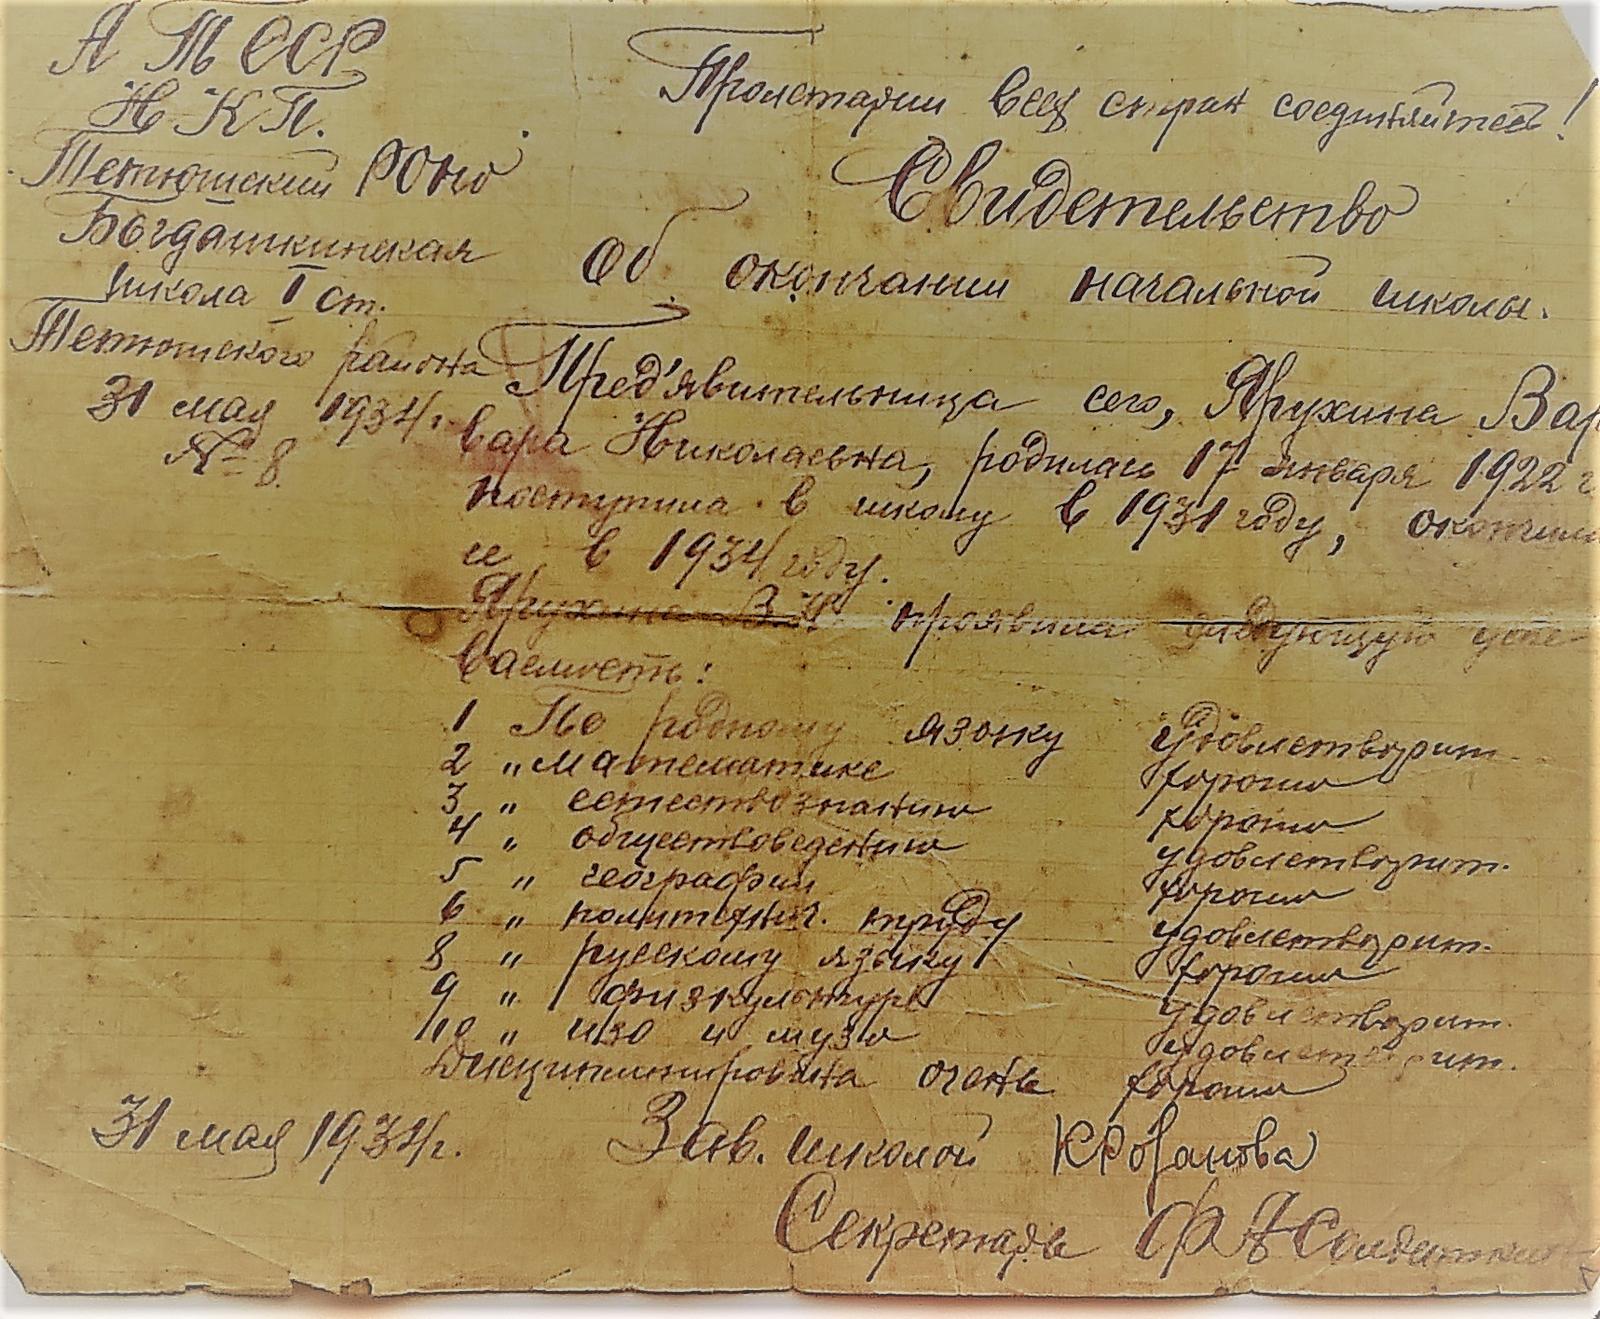 А Т ССР
Н К П.
Тетюшский РОНО
Богдашкинская
школа I ст.
Тетюшского района
31 мая 1934 г.
№ 8.
Пролетарии всех стран соединяйтесь!
Свидетельство
Об окончании начальной школы.
Пред'явительница сего, Ярухина Вар
вара Николаевна, родилась 17 января 1922 г
поступила в школу в 1931 году, окончила
ее в 1934 году.
Ярухина В Н проявила следующую успе
ваемость:
1 По родному языку удовлетворит.
2 " математике хорошо
3 " естествознанию хорошо
4 " обществоведению удовлетворит.
5 " географии хорошо
6 " политехнич. труду удовлетворит.
8 " русскому языку хорошо
9 " физкультуре удовлетворит.
10 " изо и музо удовлетворит.
Дисциплинирована очень хорошо
31 мая 1934 г. Зав. школой К Розанова
Секретарь Ф А